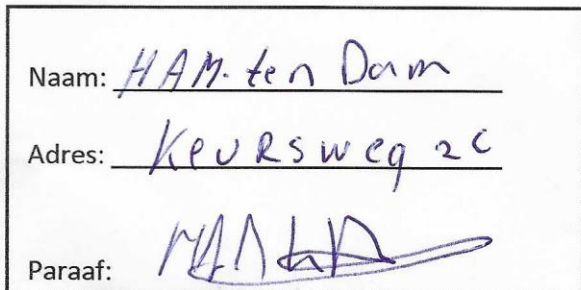 Naam: HAM. ten Dam
Adres: Keursweg 2c
Paraaf: